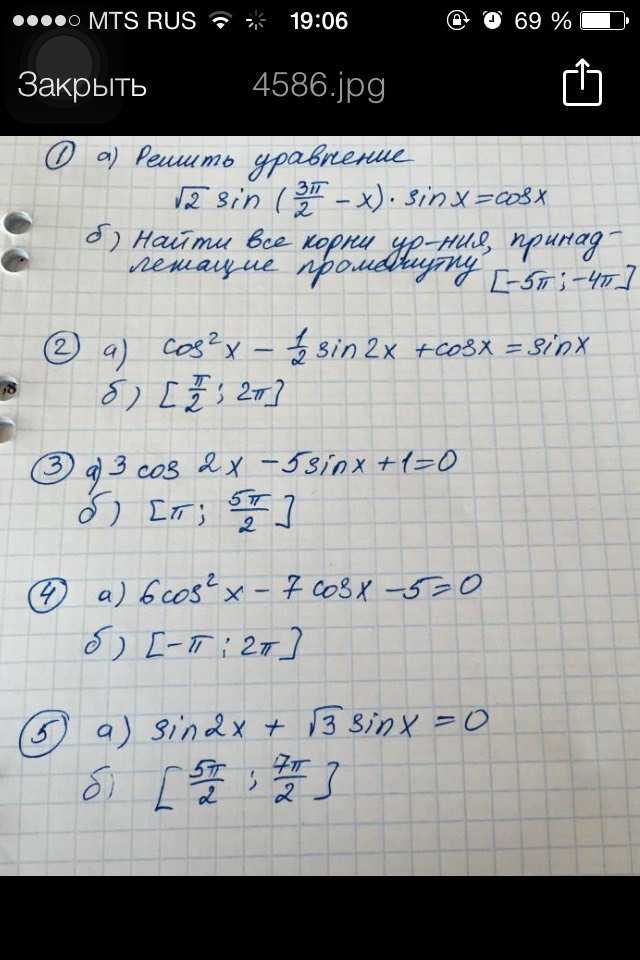 MTS RUS 19:06 69 %
Закрыть 4586.jpg
① а) Решить уравнение
√2 sin (3π/2 − x) · sin x = cos x
б) Найти все корни ур-ния, принад-
лежащие промежутку [−5π ; −4π]
② а) cos² x − 1/2 sin 2x + cos x = sin x
б) [π/2 ; 2π]
③ а) 3 cos 2x − 5 sin x + 1 = 0
б) [π ; 5π/2]
④ а) 6 cos² x − 7 cos x − 5 = 0
б) [−π ; 2π]
⑤ а) sin 2x + √3 sin x = 0
б) [5π/2 ; 7π/2]